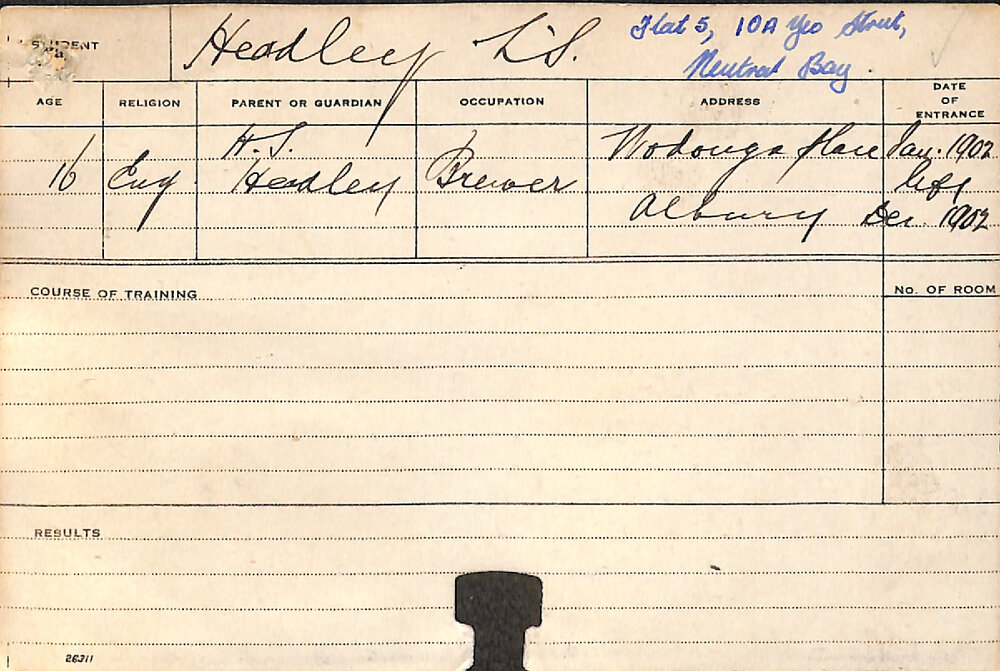 STUDENT
Headley L.S.
Flat 5, 10A Yeo Street,
Neutral Bay.
AGE
RELIGION
PARENT OR GUARDIAN
OCCUPATION
ADDRESS
DATE
OF
ENTRANCE
16
Eng.
H. S.
Headley
Brewer
Wodonga Place
Albury
Jan. 1902
left
Dec. 1902
COURSE OF TRAINING
No. OF ROOM
RESULTS
26311